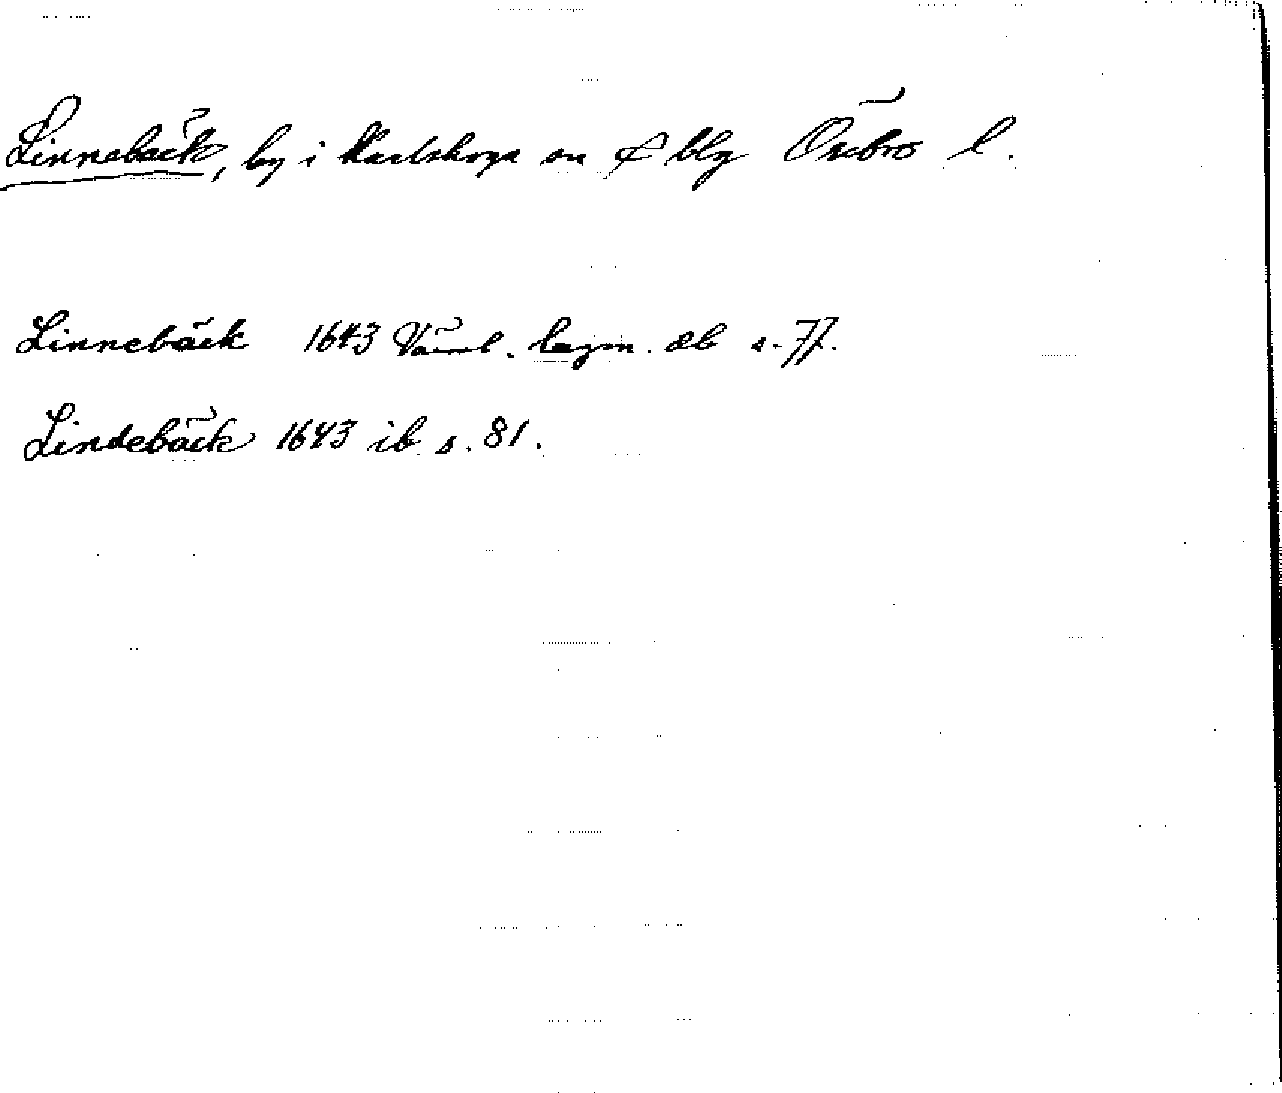 Linnebäck, by i Karlskoga sn & blg Örebro l.
Linnebäck 1643 Värml. lagm. db s. 77.
Lindebäck 1643 ib s. 81.